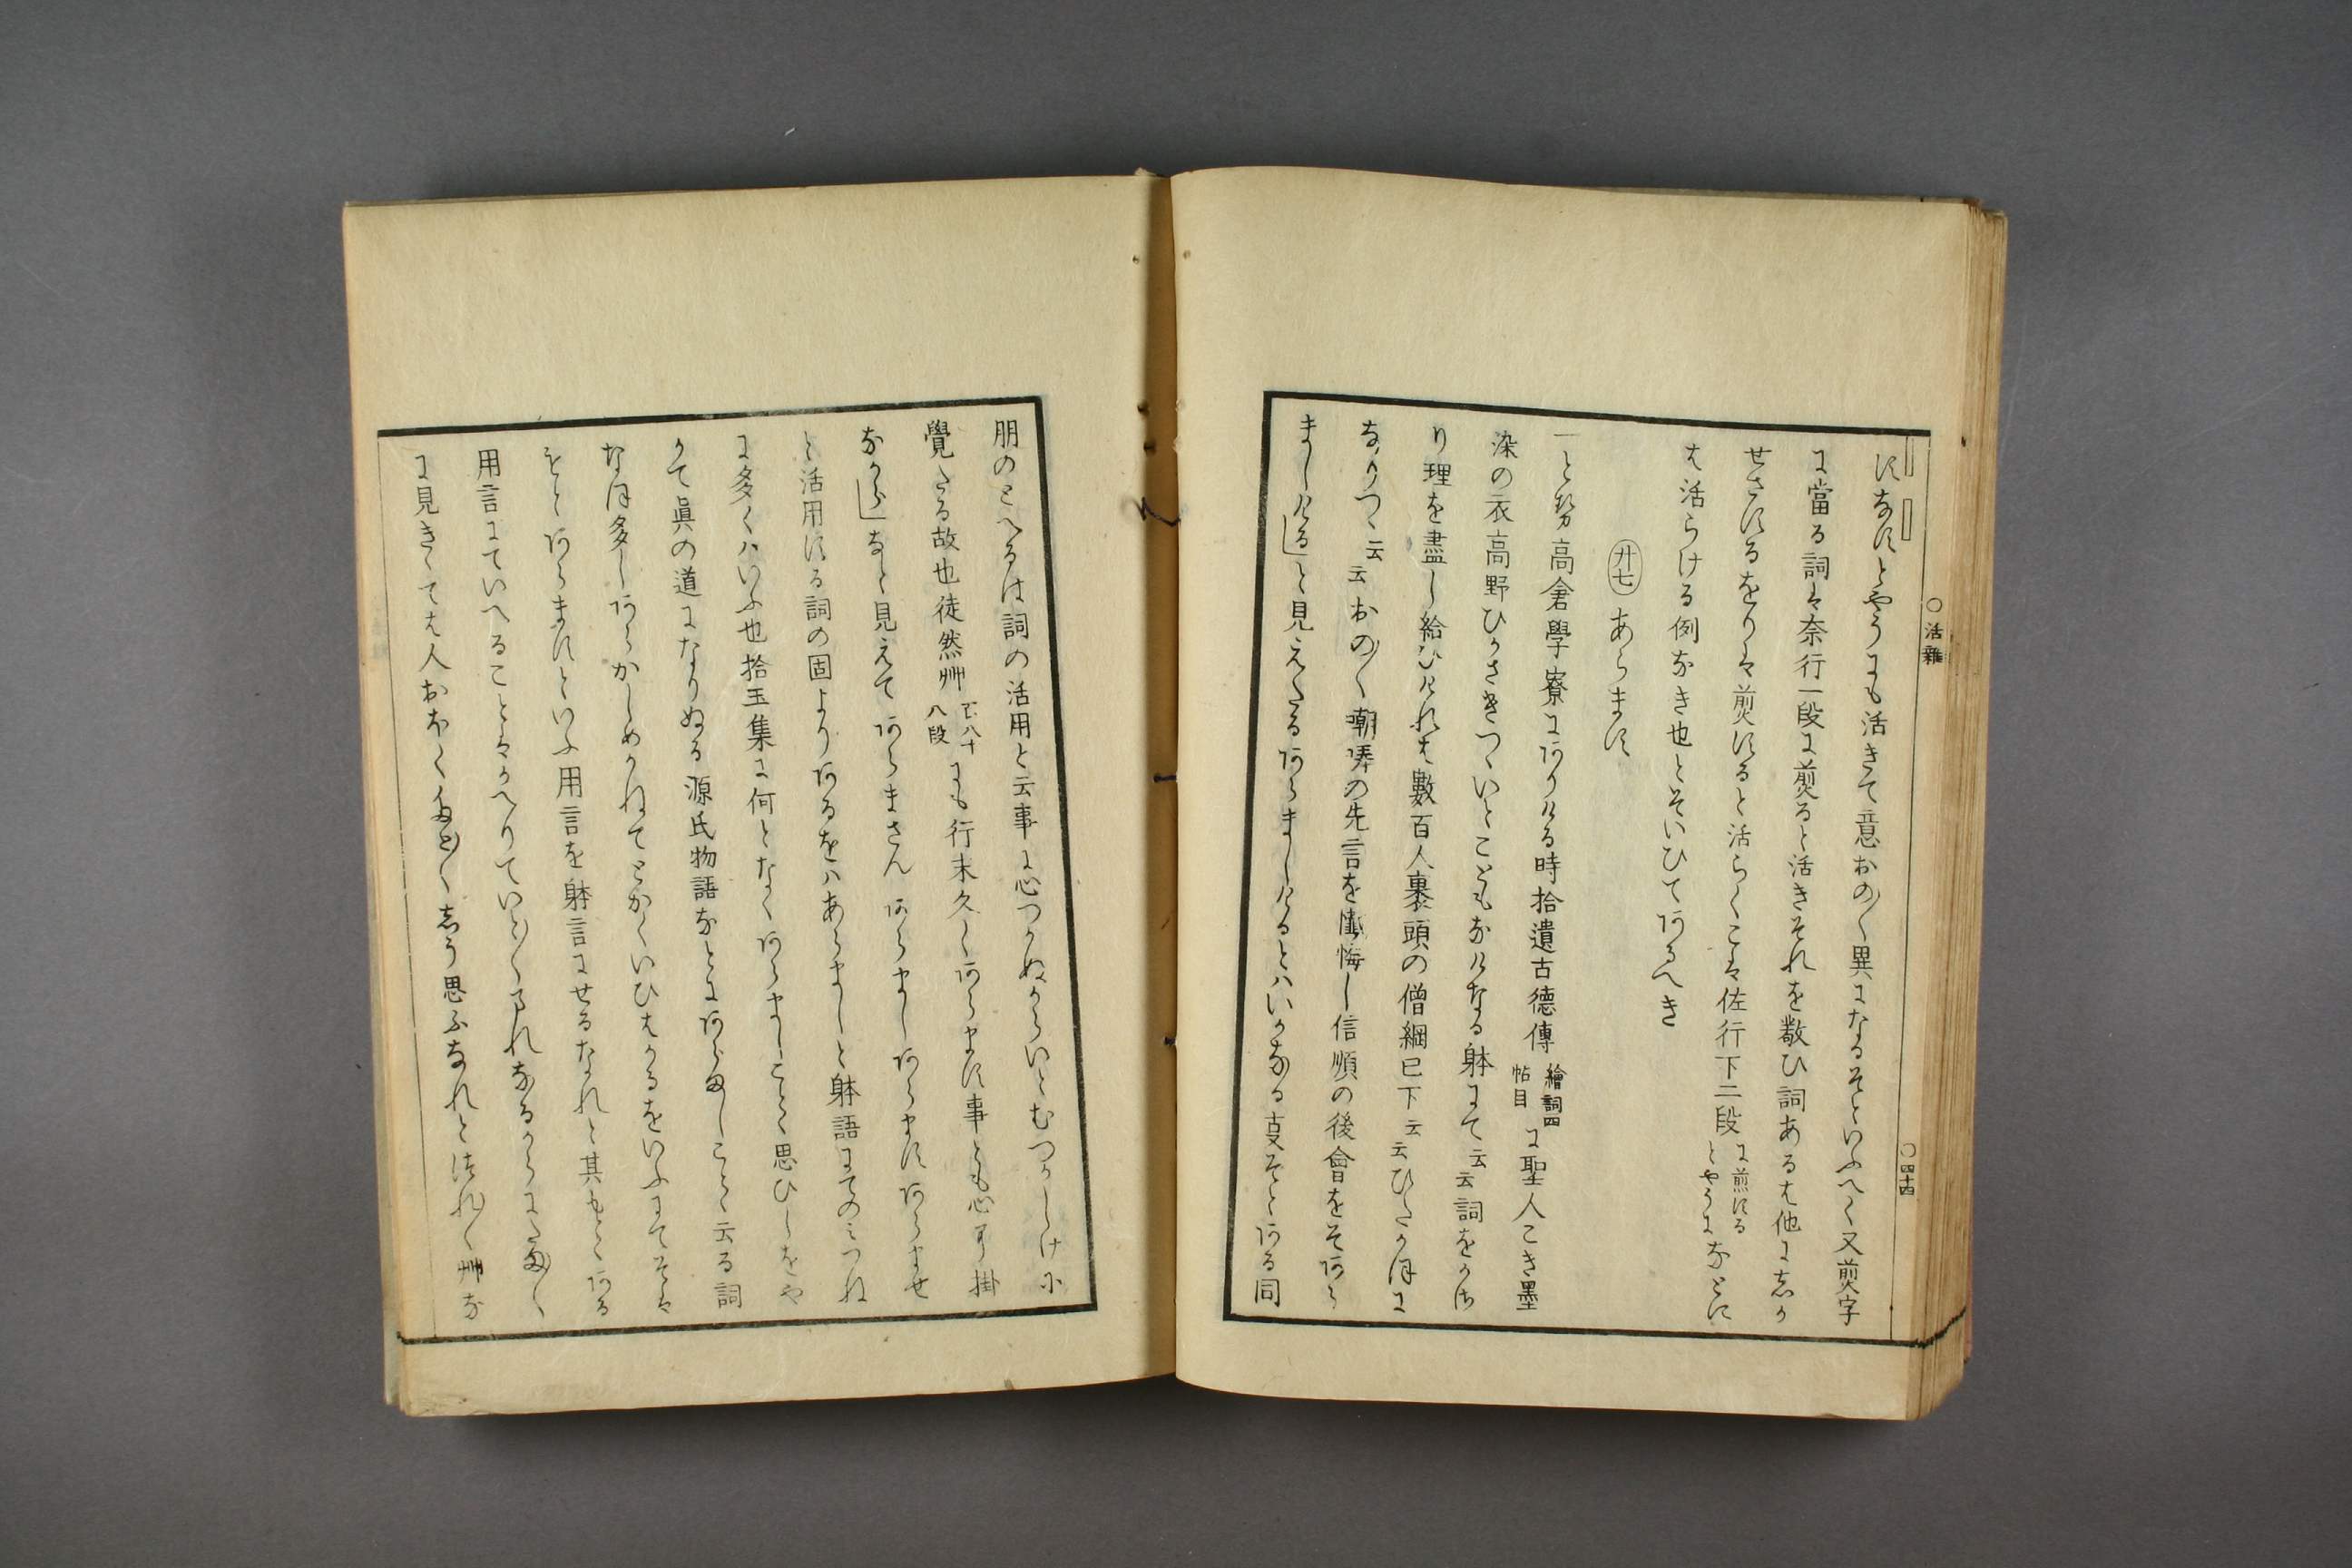 ○活雜
○四十四
すなすとやうにも活きて意おの〱異になるそといふへく又煎字
に當る詞は奈行一段に煎ると活きそれを敬ひ詞あるは他に志か
せさするをりは煎すると活らくこは佐行下二段に煎するとやうになとに
は活らける例なき也とそいひてあるへき
廿七 あらます
一と勢高倉學寮にありける時拾遺古德傳繪詞四帖目に聖人こき墨
染の衣高野ひかさきつゝいとこともなけなる躰にて云云詞をかさ
り理を盡し給ひけれは數百人裹頭の僧綱已下云云ひたかほに
なりつゝ云云おの〱嘲哢の先言を懺悔し信順の後會をそあら
ましける」と見えたるあらましけるとはいかなる叓そとある同
朋のとへるは詞の活用と云事に心つかぬからいとむつかしけに
覺たる故也徒然艸百八十八段にも行末久しくあらます事とも心に掛
なから」なと見えてあらまさんあらましあらますあらませ
と活用する詞の固よりあるをはあらましと躰語にてのみつね
に多くはいふ也拾玉集に何となくあらましことゝ思ひしをや
かて眞の道になりぬる源氏物語なとにあらましことゝ云る詞
なほ多しあらかしめかねてとかくいひはかるをいふにてそは
もとあらますといふ用言を躰言にせるなれと其もとゝある
用言にていへることはかへりていと〱まれなるからにたま〱
に見きゝては人おほくたと〱志う思ふなれとつれ〱艸な